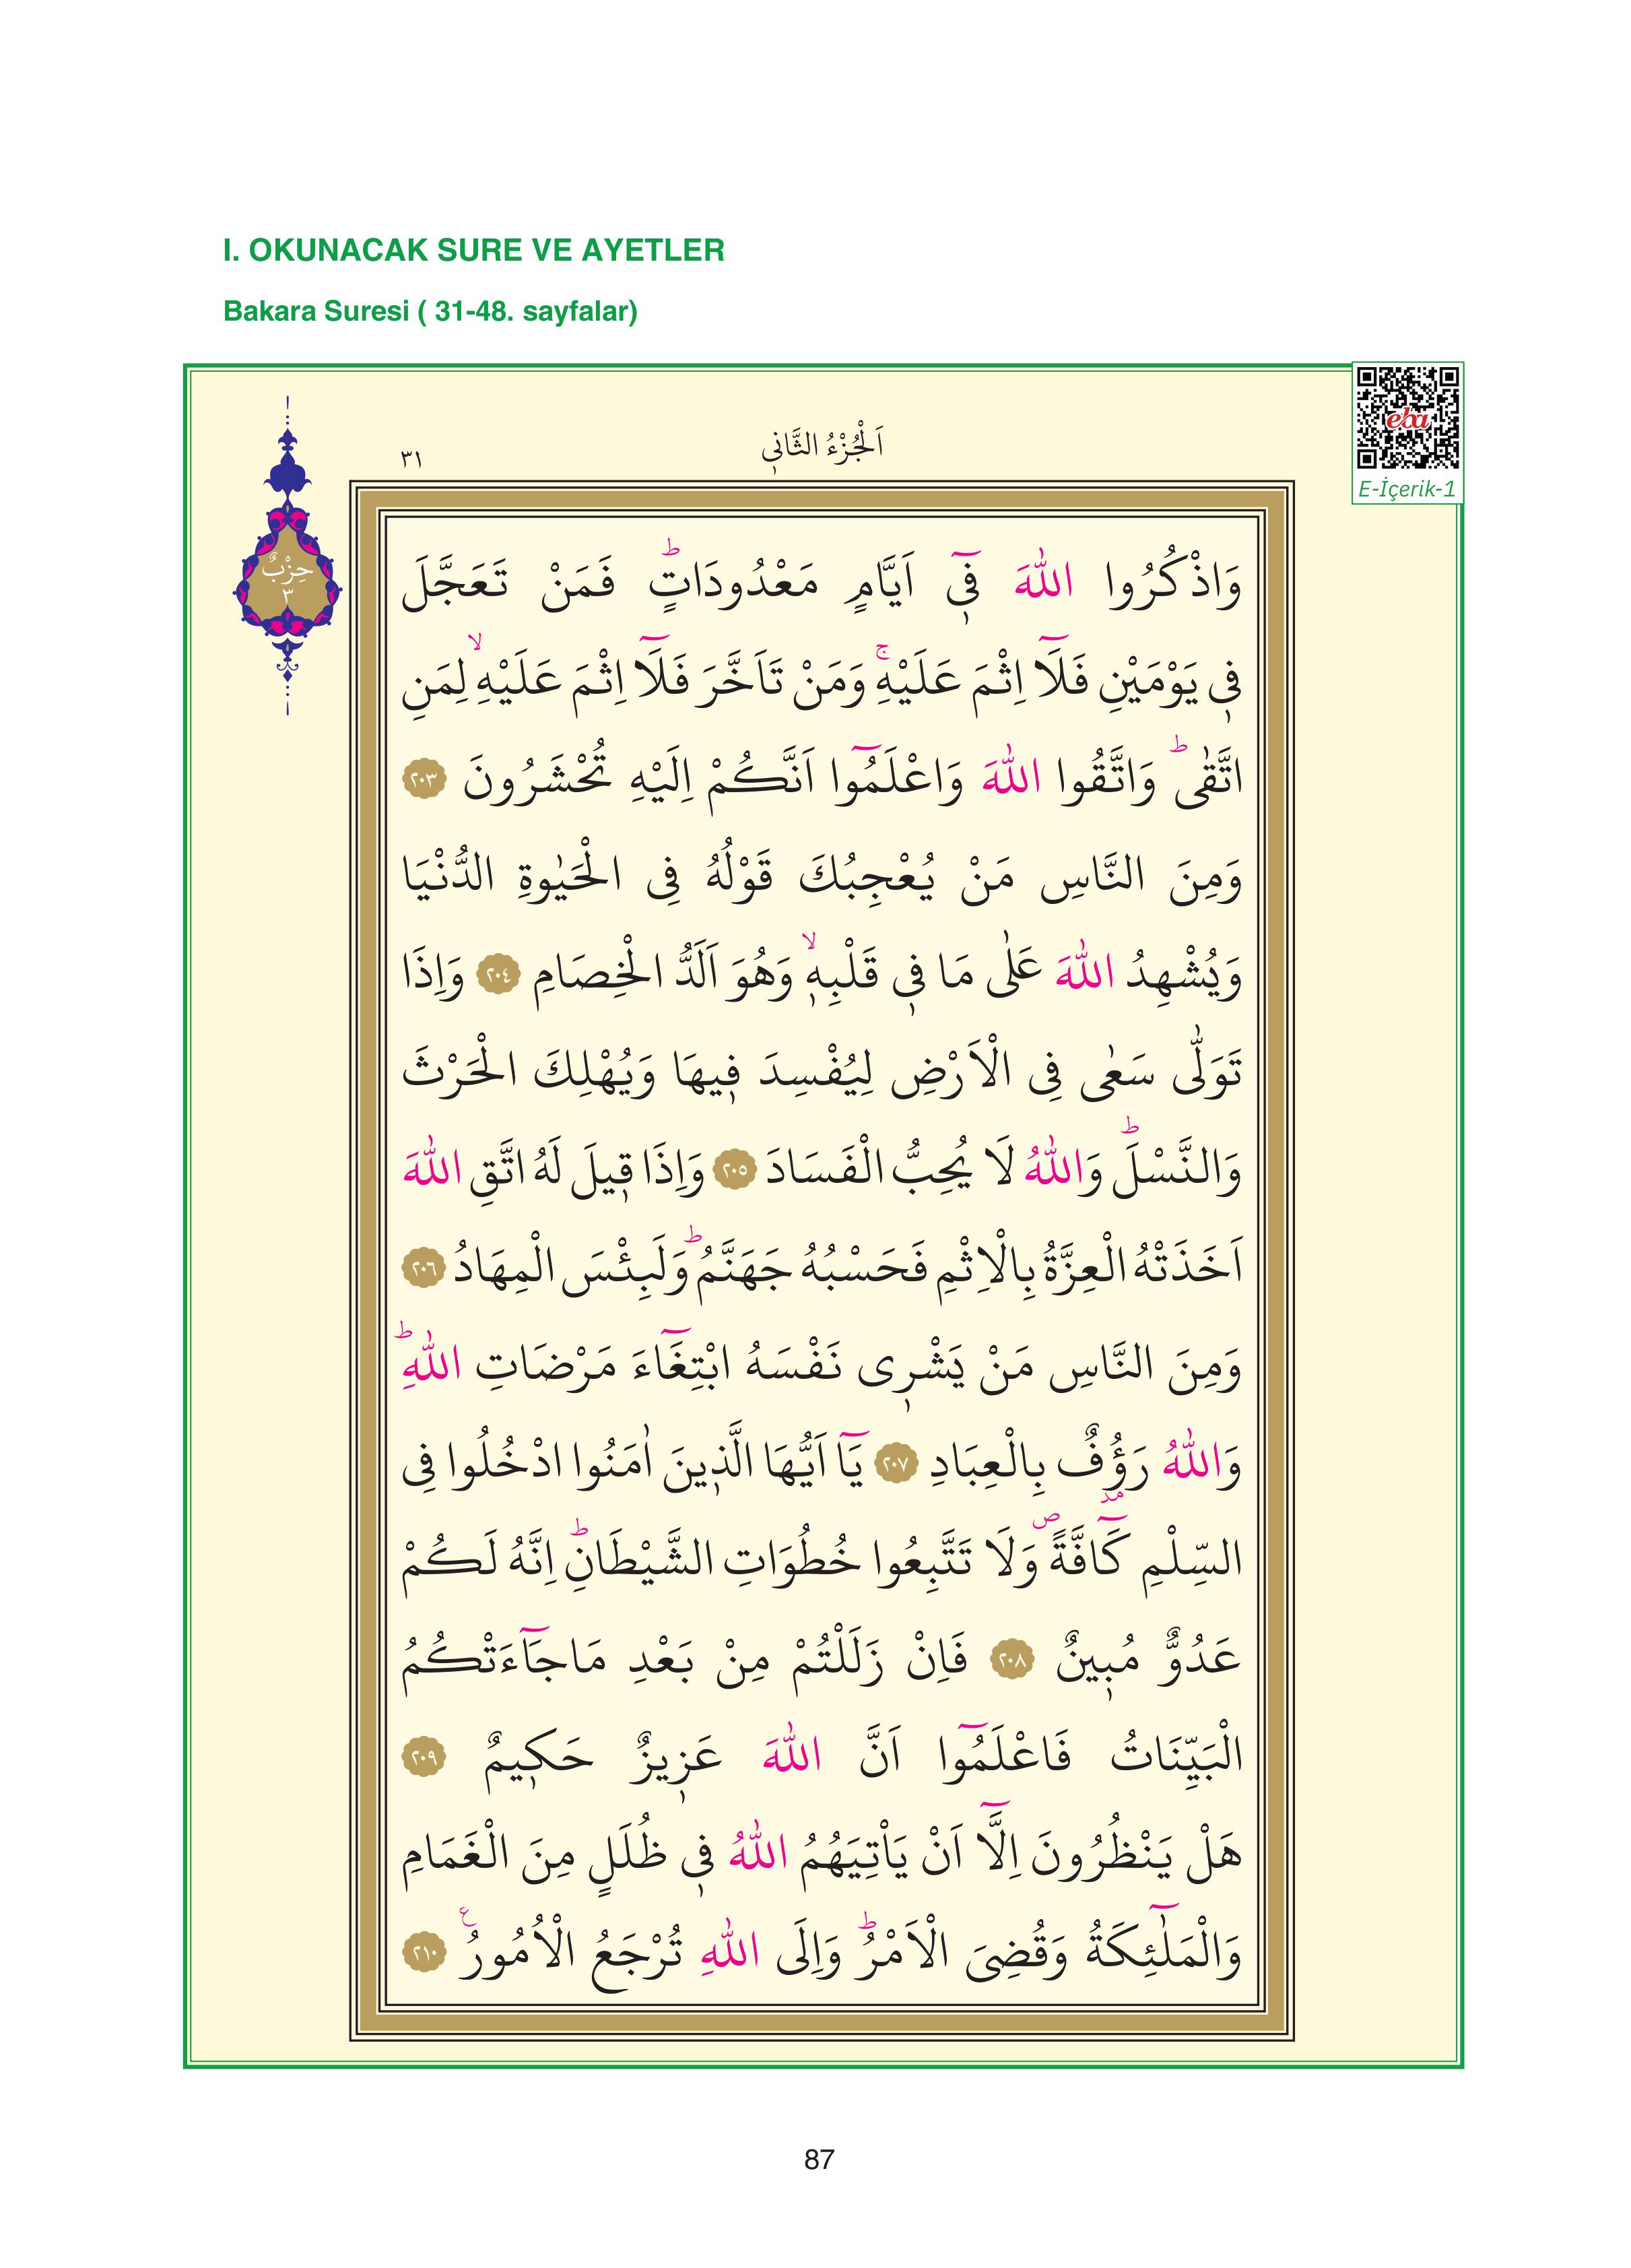 I. OKUNACAK SURE VE AYETLER
Bakara Suresi ( 31-48. sayfalar)
eba
E-İçerik-1
اَلْجُزْءُ الثَّانٖي
٣١
حِزْبٌ
٣
وَاذْكُرُوا اللّٰهَ فٖٓي اَيَّامٍ مَعْدُودَاتٍؕ فَمَنْ تَعَجَّلَ
فٖي يَوْمَيْنِ فَلَٓا اِثْمَ عَلَيْهِۚ وَمَنْ تَاَخَّرَ فَلَٓا اِثْمَ عَلَيْهِۙ لِمَنِ
اتَّقٰىؕ وَاتَّقُوا اللّٰهَ وَاعْلَمُٓوا اَنَّكُمْ اِلَيْهِ تُحْشَرُونَ ﴿٢٠٣﴾
وَمِنَ النَّاسِ مَنْ يُعْجِبُكَ قَوْلُهُ فِي الْحَيٰوةِ الدُّنْيَا
وَيُشْهِدُ اللّٰهَ عَلٰى مَا فٖي قَلْبِهٖۙ وَهُوَ اَلَدُّ الْخِصَامِ ﴿٢٠٤﴾ وَاِذَا
تَوَلّٰى سَعٰى فِي الْاَرْضِ لِيُفْسِدَ فٖيهَا وَيُهْلِكَ الْحَرْثَ
وَالنَّسْلَؕ وَاللّٰهُ لَا يُحِبُّ الْفَسَادَ ﴿٢٠٥﴾ وَاِذَا قٖيلَ لَهُ اتَّقِ اللّٰهَ
اَخَذَتْهُ الْعِزَّةُ بِالْاِثْمِ فَحَسْبُهُ جَهَنَّمُؕ وَلَبِئْسَ الْمِهَادُ ﴿٢٠٦﴾
وَمِنَ النَّاسِ مَنْ يَشْرٖي نَفْسَهُ ابْتِغَٓاءَ مَرْضَاتِ اللّٰهِؕ
وَاللّٰهُ رَؤُفٌ بِالْعِبَادِ ﴿٢٠٧﴾ يَٓا اَيُّهَا الَّذٖينَ اٰمَنُوا ادْخُلُوا فِي
السِّلْمِ كَٓافَّةًࣕ وَلَا تَتَّبِعُوا خُطُوَاتِ الشَّيْطَانِؕ اِنَّهُ لَكُمْ
عَدُوٌّ مُبٖينٌ ﴿٢٠٨﴾ فَاِنْ زَلَلْتُمْ مِنْ بَعْدِ مَا جَٓاءَتْكُمُ
الْبَيِّنَاتُ فَاعْلَمُٓوا اَنَّ اللّٰهَ عَزٖيزٌ حَكٖيمٌ ﴿٢٠٩﴾
هَلْ يَنْظُرُونَ اِلَّٓا اَنْ يَاْتِيَهُمُ اللّٰهُ فٖي ظُلَلٍ مِنَ الْغَمَامِ
وَالْمَلٰٓئِكَةُ وَقُضِيَ الْاَمْرُؕ وَاِلَى اللّٰهِ تُرْجَعُ الْاُمُورُࣖ ﴿٢١٠﴾
87